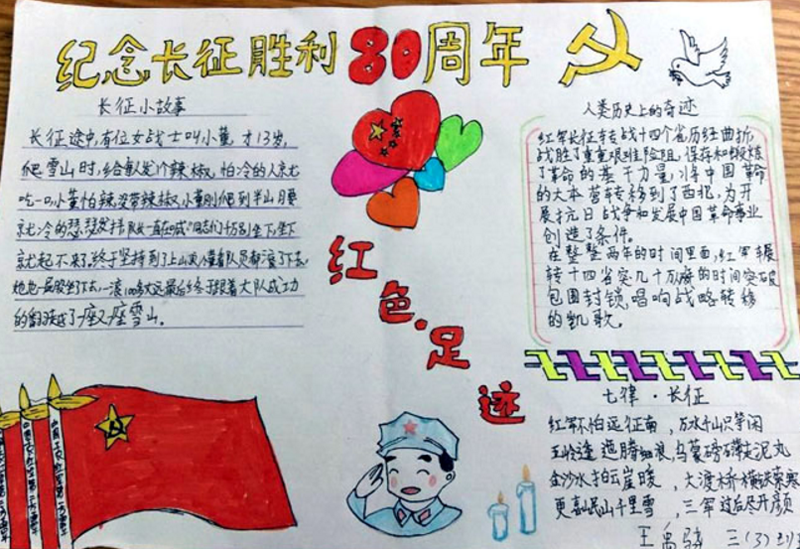 纪念长征胜利80周年
长征小故事
长征途中,有位女战士叫小董,才13岁,
爬雪山时,给每人发个辣椒,怕冷的人就
吃一口,小董怕辣,没带辣椒,小董刚爬到半山腰
就冷的瑟瑟发抖,队长一直在喊"同志们千万别坐下,坐下
就起不来了。终于坚持到了上山顶
的翻越了一座又一座雪山。
人类历史上的奇迹
红军长征转战十四个省历经曲折,
战胜了重重艰难险阻,保存和锻炼
了革命的基干力量,将中国革命
的大本营转移到了西北,为开
展抗日战争和发展中国革命事业
创造了条件。
在整整两年的时间里面,红军辗
转十四省突几十万
包围封锁,唱响战略转移
的凯歌。
红色·足迹
七律·长征
红军不怕远征南,万水千山只等闲
五岭逶迤腾细浪,乌蒙磅礴走泥丸
金沙水拍云崖暖,大渡桥横铁索寒
更喜岷山千里雪,三军过后尽开颜
王禹骁 三(3)班